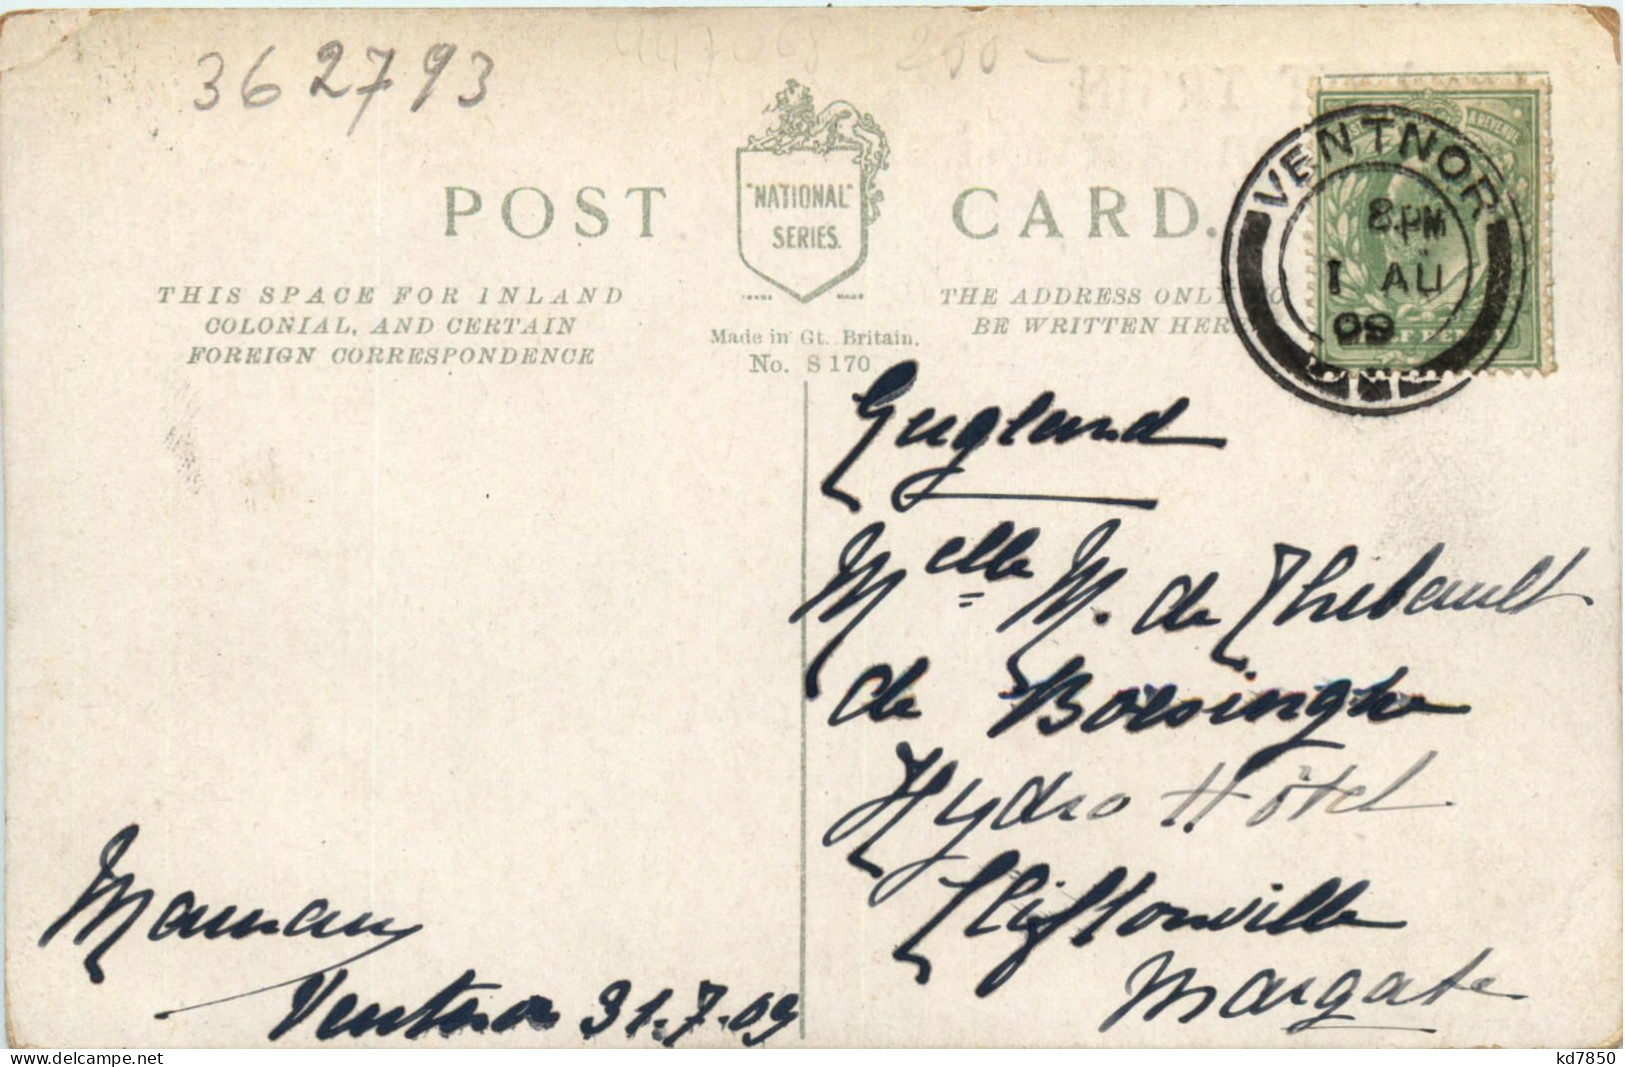 362793
250-
POST CARD.
"NATIONAL"
SERIES.
TRADE MARK
THIS SPACE FOR INLAND
COLONIAL, AND CERTAIN
FOREIGN CORRESPONDENCE
Made in Gt. Britain.
No. S 170
THE ADDRESS ONLY TO
BE WRITTEN HERE
VENTNOR
8.PM
1 AU
09
& REVENUE
England
Melle M. de Thibault
de Boesinghe
Hydro Hôtel
Cliftonville
Margate
Maman
Ventnor 31.7.09
kd7850